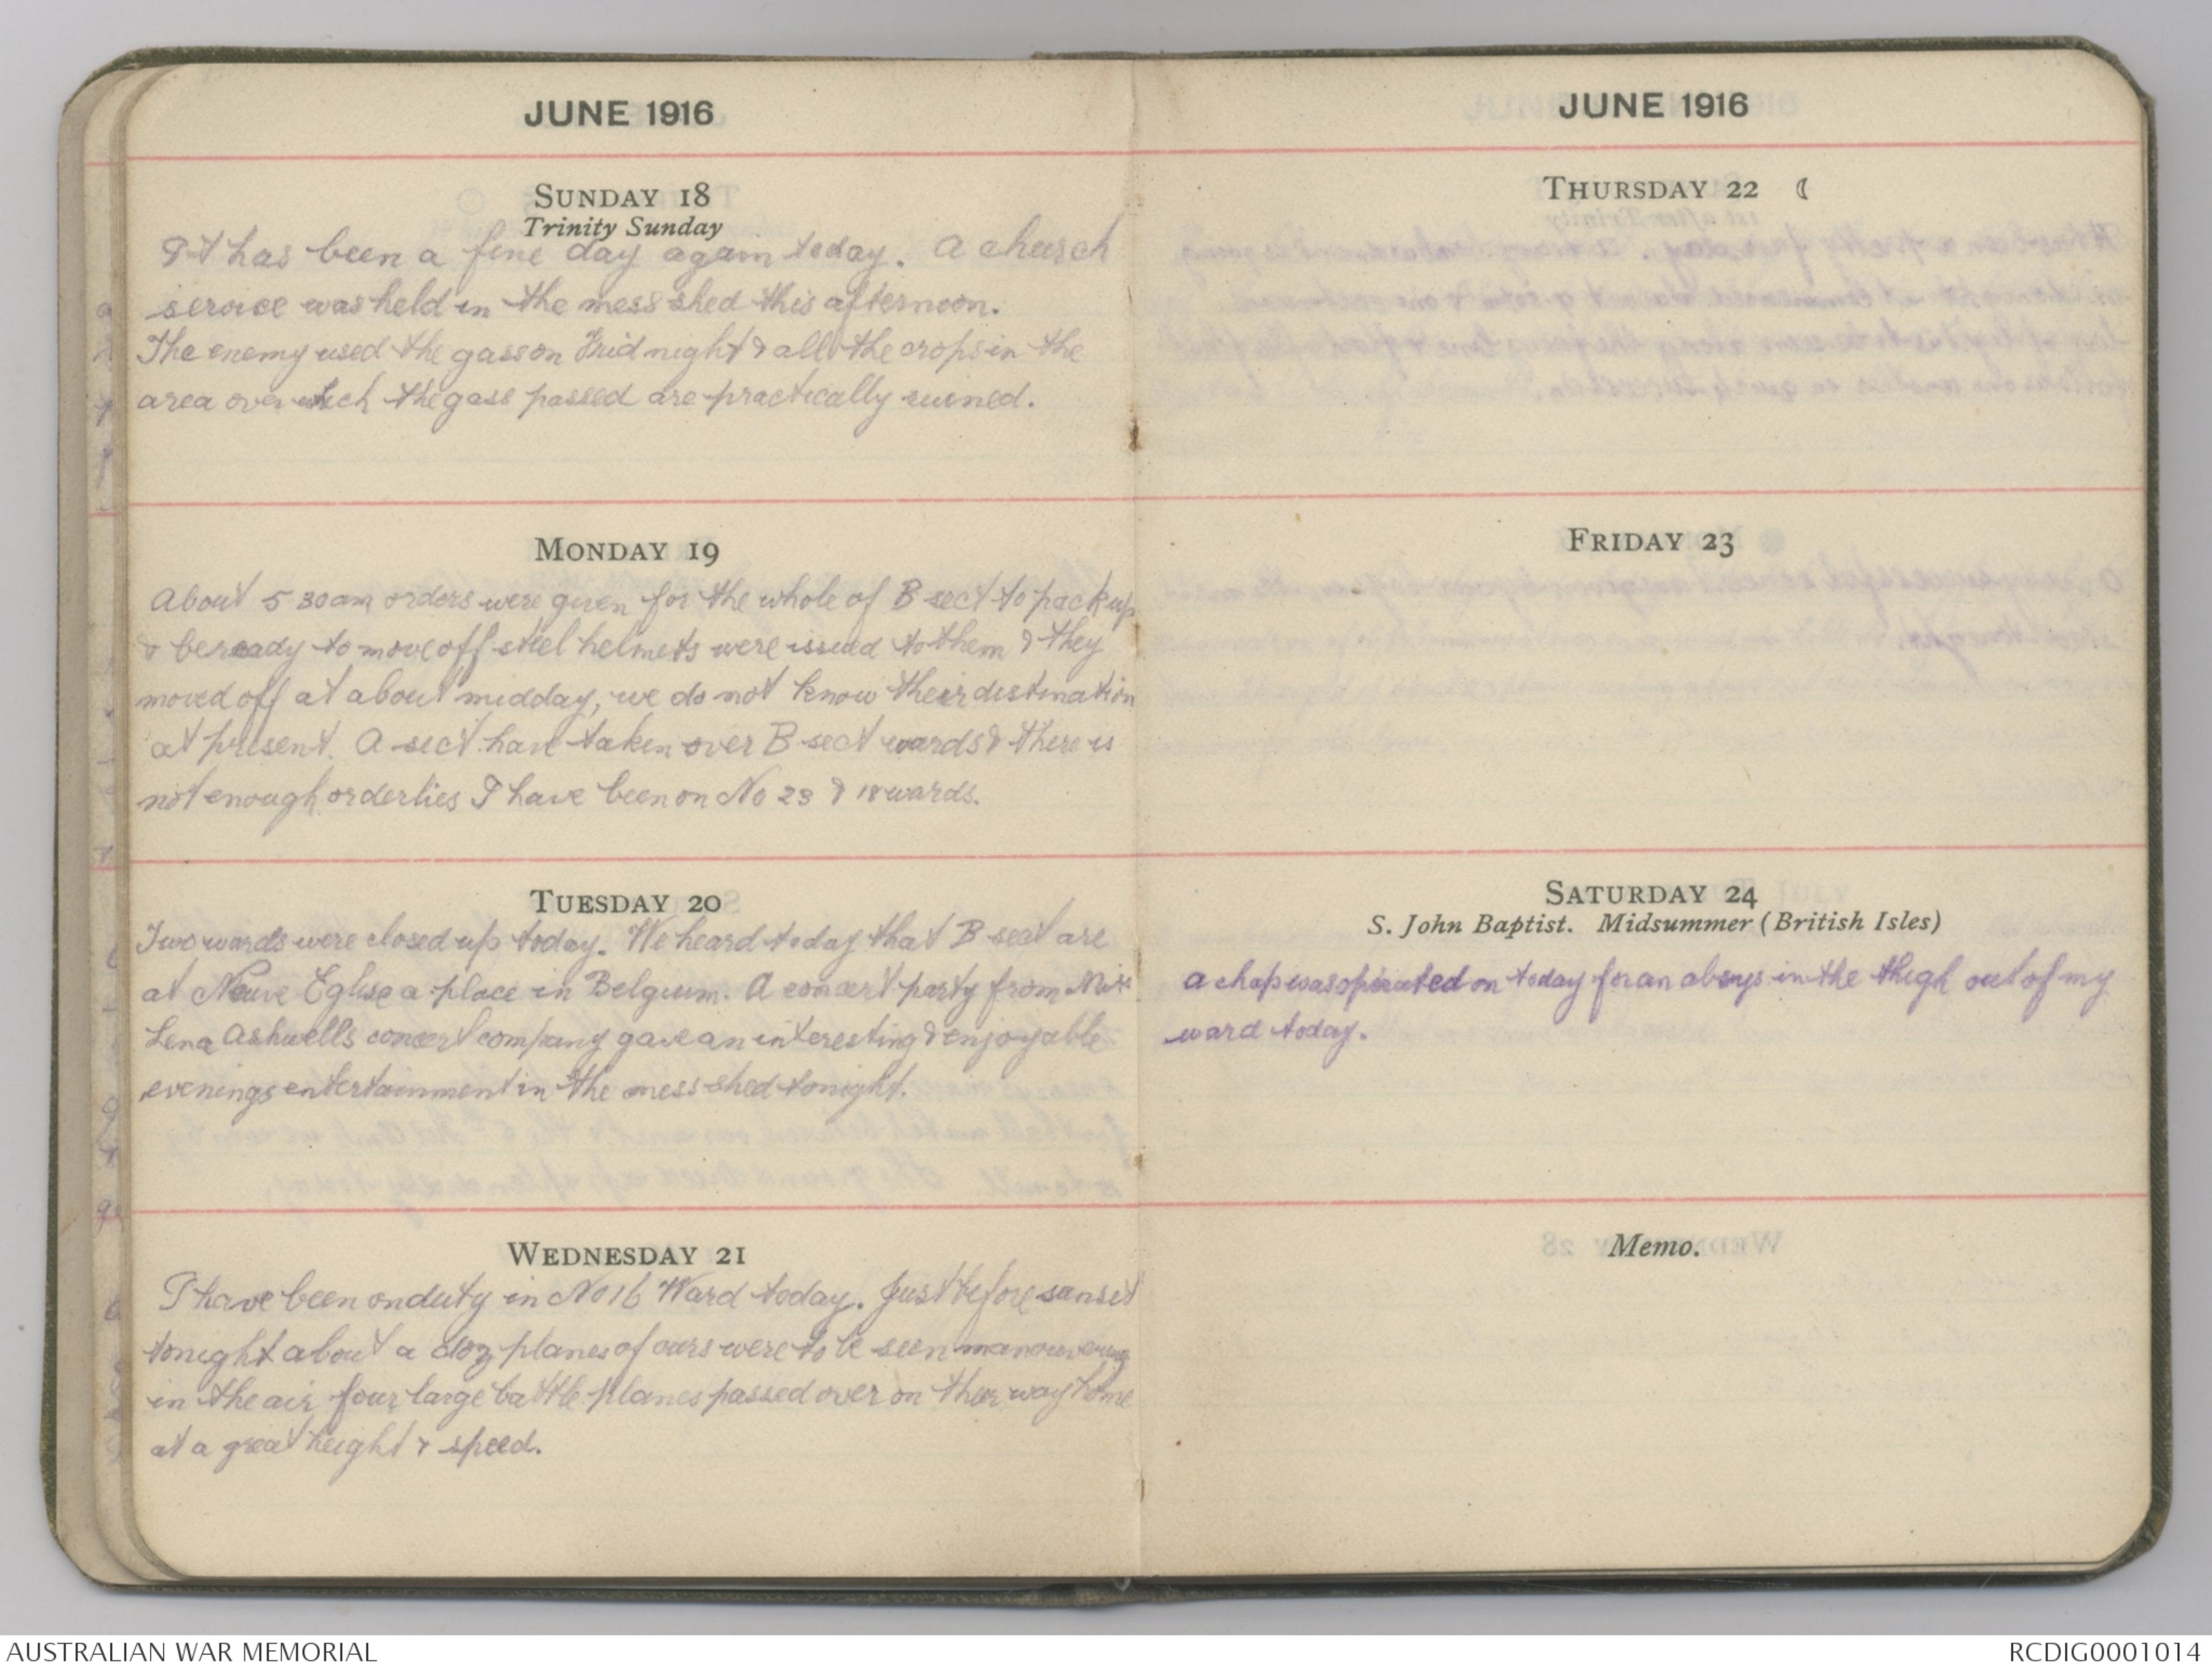 JUNE 1916
SUNDAY 18
Trinity Sunday
It has been a fine day again today. A church
service was held in the mess shed this afternoon.
The enemy used the gass on Frid night & all the crops in the
area over which the gass passed are practically ruined.
MONDAY 19
About 5 30am orders were given for the whole of B sect to pack up
& be ready to move off steel helmets were issued to them & they
moved off at about midday, we do not know their destination
at present. A sect. have taken over B sect wards & there is
not enough orderlies I have been on No 23 & 18 wards.
TUESDAY 20
Two wards were closed up today. We heard today that B sect are
at Neuve Eglise a place in Belgium. A concert party from Miss
Lena Ashwells concert company gave an interesting & enjoyable
evenings entertainment in the mess shed tonight.
WEDNESDAY 21
I have been on duty in No 16 Ward today. Just before sunset
tonight about a doz planes of ours were to be seen manouvering
in the air four large battle planes passed over on their way home
at a great height & speed.
JUNE 1916
THURSDAY 22
FRIDAY 23
SATURDAY 24
S. John Baptist. Midsummer (British Isles)
a chap was operated on today for an in the thigh out of my
ward today.
Memo.
AUSTRALIAN WAR MEMORIAL
RCDIG0001014